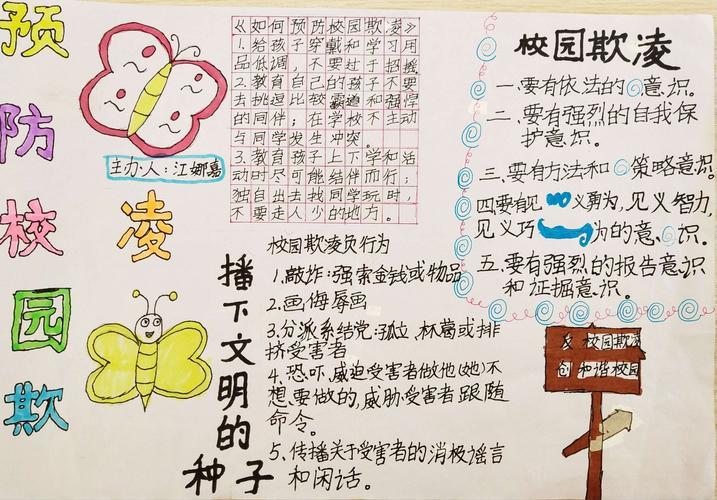 预防校园欺凌
主办人：江娜嘉
《如何预防校园欺凌》
1.给孩子穿戴和学习用
品低调，不要过于招摇
2.教育自己的孩子不要
去挑逗比较霸道和强悍
的同伴；在学校不主动
与同学发生冲突。
3.教育孩子上下学和活
动时尽可能结伴而行；
独自出去找同学玩时，
不要走人少的地方。
校园欺凌负行为
1.敲炸：强索金钱或物品
2.画侮辱画
3.分派系结党：孤立、林葛或排
挤受害者
4.恐吓、威迫受害者做他(她)不
想要做的，威胁受害者跟随
命令。
5.传播关于受害者的消极谣言
和闲话。
播下文明的
种子
校园欺凌
一.要有依法的意识。
二、要有强烈的自我保
护意识。
三、要有方法和策略意识。
四要有见义勇为，见义智力，
见义巧为的意识。
五、要有强烈的报告意识
和证掘意识。
反校园欺凌
创和谐校园